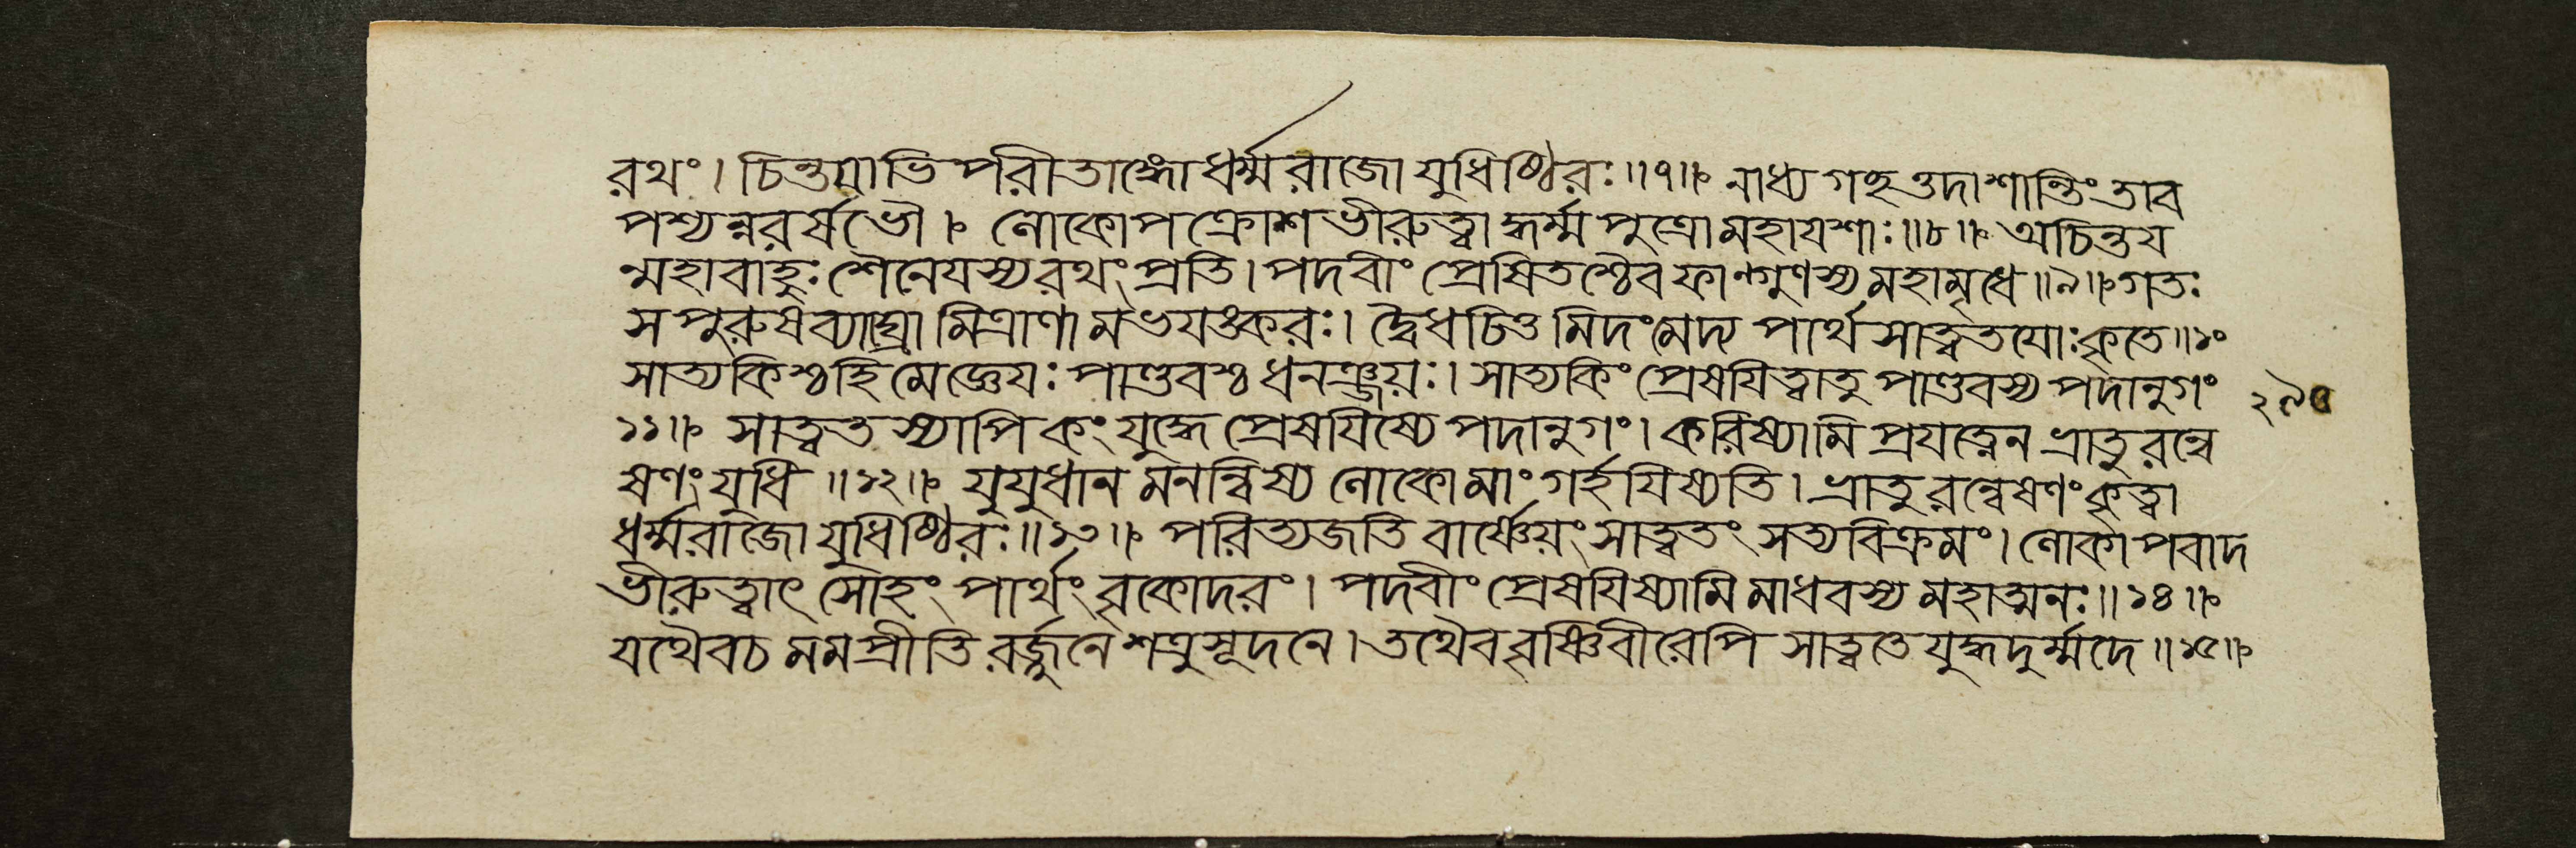 রথং। চিন্তয়াভিপরীতাঙ্গোধর্ম্মরাজোযুধিষ্ঠিরঃ॥৭॥ নাধ্যগছত্তদাশান্তিংতাব
পশ্যন্নরর্ষভৌ। লোকোপক্রোশভীরুত্বাদ্ধর্ম্মপুত্রোমহাযশাঃ॥৮॥ অচিন্তয
ন্মহাবাহুঃশৈনেযস্যরথংপ্রতি। পদবীং প্রেষিতশ্চৈবফাল্গুণস্যমহামৃধে॥৯॥ গতঃ
সপুরুষব্যাঘ্রোমিত্রাণামভযঙ্করঃ। দ্বৈধচিত্তমিদংমেদ্য পার্থসাত্বতযোঃকৃতে॥১০
সাত্যকিশ্চহিমেজ্ঞেযঃ পাণ্ডবশ্চধনঞ্জয়ঃ। সাত্যকিংপ্রেষযিত্বাতুপাণ্ডবস্যপদানুগং
১১॥ সাত্বতস্যাপিকংযুদ্ধেপ্রেষযিষ্যেপদানুগং। করিষ্যামিপ্রযত্নেনভ্রাতুরন্বে
ষণংযুধি॥১২॥ যুযুধানমনন্বিষ্যলোকোমাংগর্হযিষ্যতি। ভ্রাতুরন্বেষণংকৃত্বা
ধর্ম্মরাজোযুধিষ্ঠিরঃ॥১৩॥ পরিত্যজতিবার্ষ্ণেয়ংসাত্বতংসত্যবিক্রমং। লোকাপবাদ
ভীরুত্বাৎসোহংপার্থংবৃকোদরং। পদবীংপ্রেষযিষ্যামিমাধবস্যমহাত্মনঃ॥১৪॥
যথৈবচমমপ্রীতিরর্জ্জুনেশত্রুসূদনে। তথৈববৃষ্ণিবীরেপিসাত্বতেযুদ্ধদুর্ম্মদে॥১৫॥